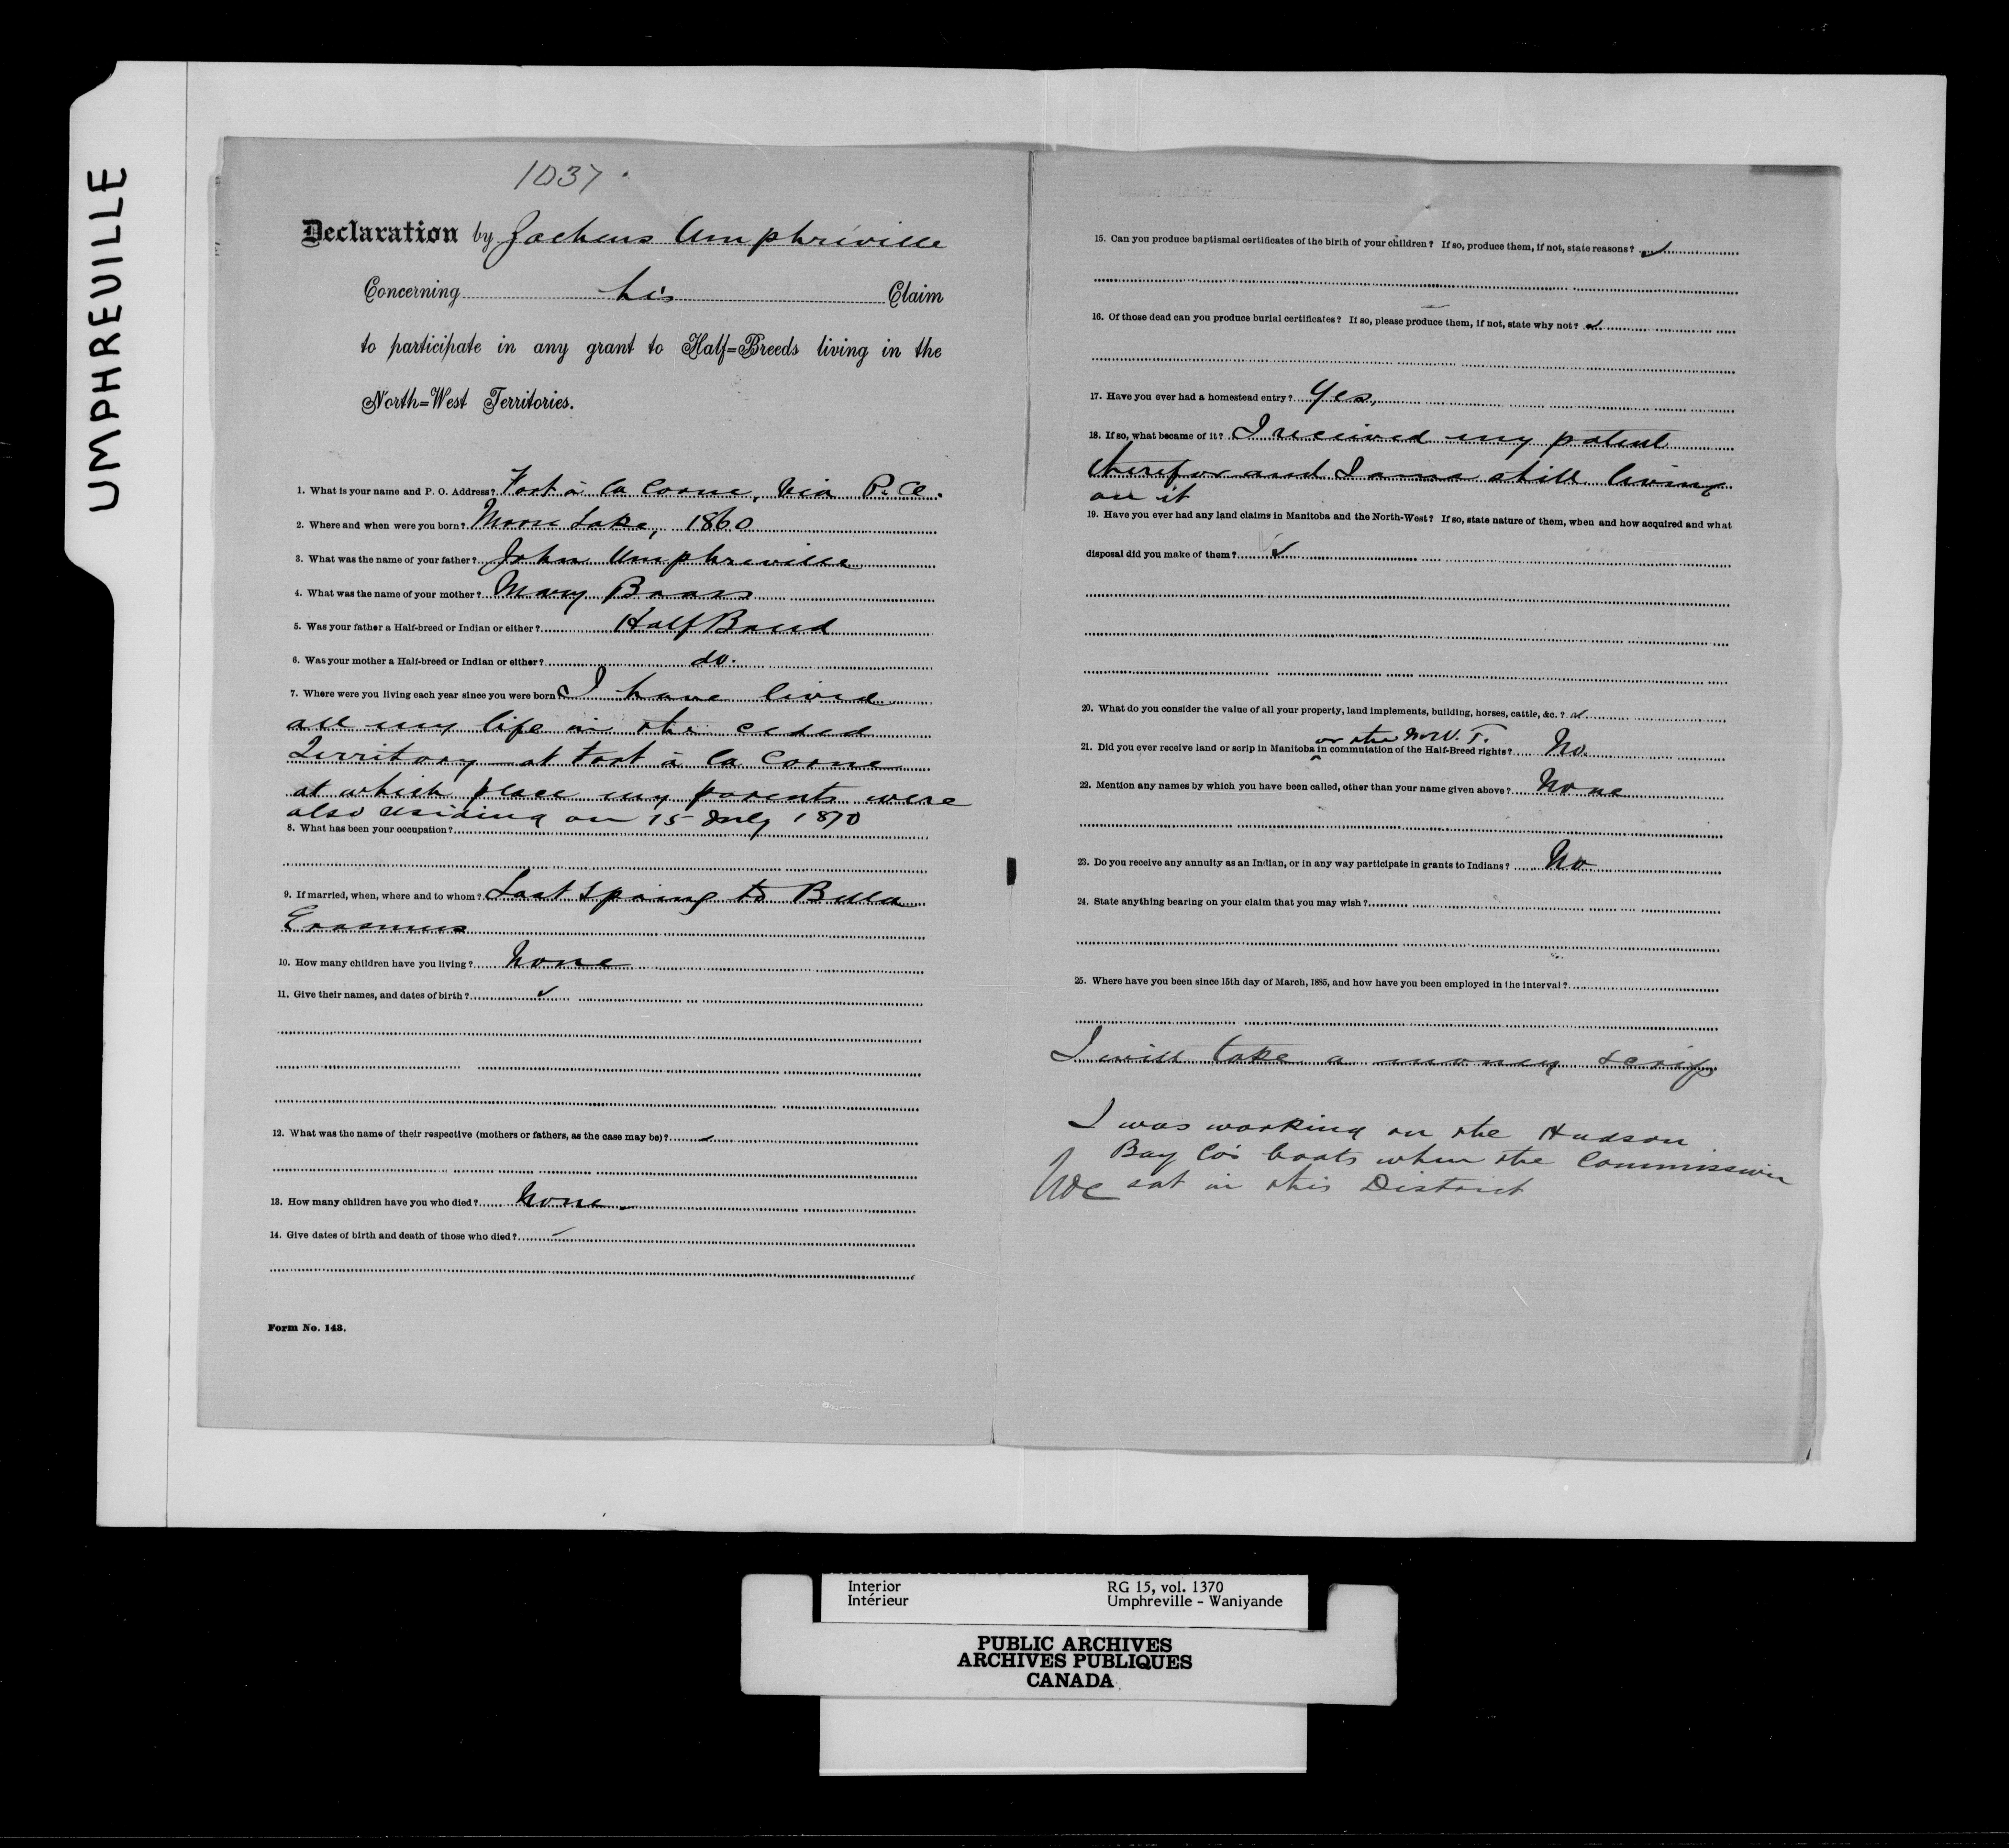 UMPHREVILLE
1037
Declaration by Zacheus Umphreville
Concerning his Claim
to participate in any grant to Half=Breeds living in the
North=West Territories.
1. What is your name and P. O. Address? Fort à la Corne, via P. A.
2. Where and when were you born? Moose Lake, 1860
3. What was the name of your father? John Umphreville
4. What was the name of your mother? Mary
5. Was your father a Half-breed or Indian or either? Half Breed
6. Was your mother a Half-breed or Indian or either? do.
7. Where were you living each year since you were born? I have lived
all my life in the ceded
Territory at Fort à la Corne
at which place my parents were
also residing on 15 July 1870
8. What has been your occupation?
9. If married, when, where and to whom? Last spring to Bella
Erasmus
10. How many children have you living? None
11. Give their names, and dates of birth?
12. What was the name of their respective (mothers or fathers, as the case may be)?
13. How many children have you who died? None
14. Give dates of birth and death of those who died?
Form No. 143.
15. Can you produce baptismal certificates of the birth of your children? If so, produce them, if not, state reasons?
16. Of those dead can you produce burial certificates? If so, please produce them, if not, state why not?
17. Have you ever had a homestead entry? Yes,
18. If so, what became of it? I received my patent
therefor and I am still living
on it
19. Have you ever had any land claims in Manitoba and the North-West? If so, state nature of them, when and how acquired and what
disposal did you make of them?
20. What do you consider the value of all your property, land implements, building, horses, cattle, &c.?
or the N.W.T.
21. Did you ever receive land or scrip in Manitoba in commutation of the Half-Breed rights? No.
22. Mention any names by which you have been called, other than your name given above? None
23. Do you receive any annuity as an Indian, or in any way participate in grants to Indians? No
24. State anything bearing on your claim that you may wish?
25. Where have you been since 15th day of March, 1885, and how have you been employed in the interval?
I will take a money scrip
I was working on the Hudson
Bay Co's boats when the Commission
sat in this District
Interior
Intérieur
RG 15, vol. 1370
Umphreville - Waniyande
PUBLIC ARCHIVES
ARCHIVES PUBLIQUES
CANADA